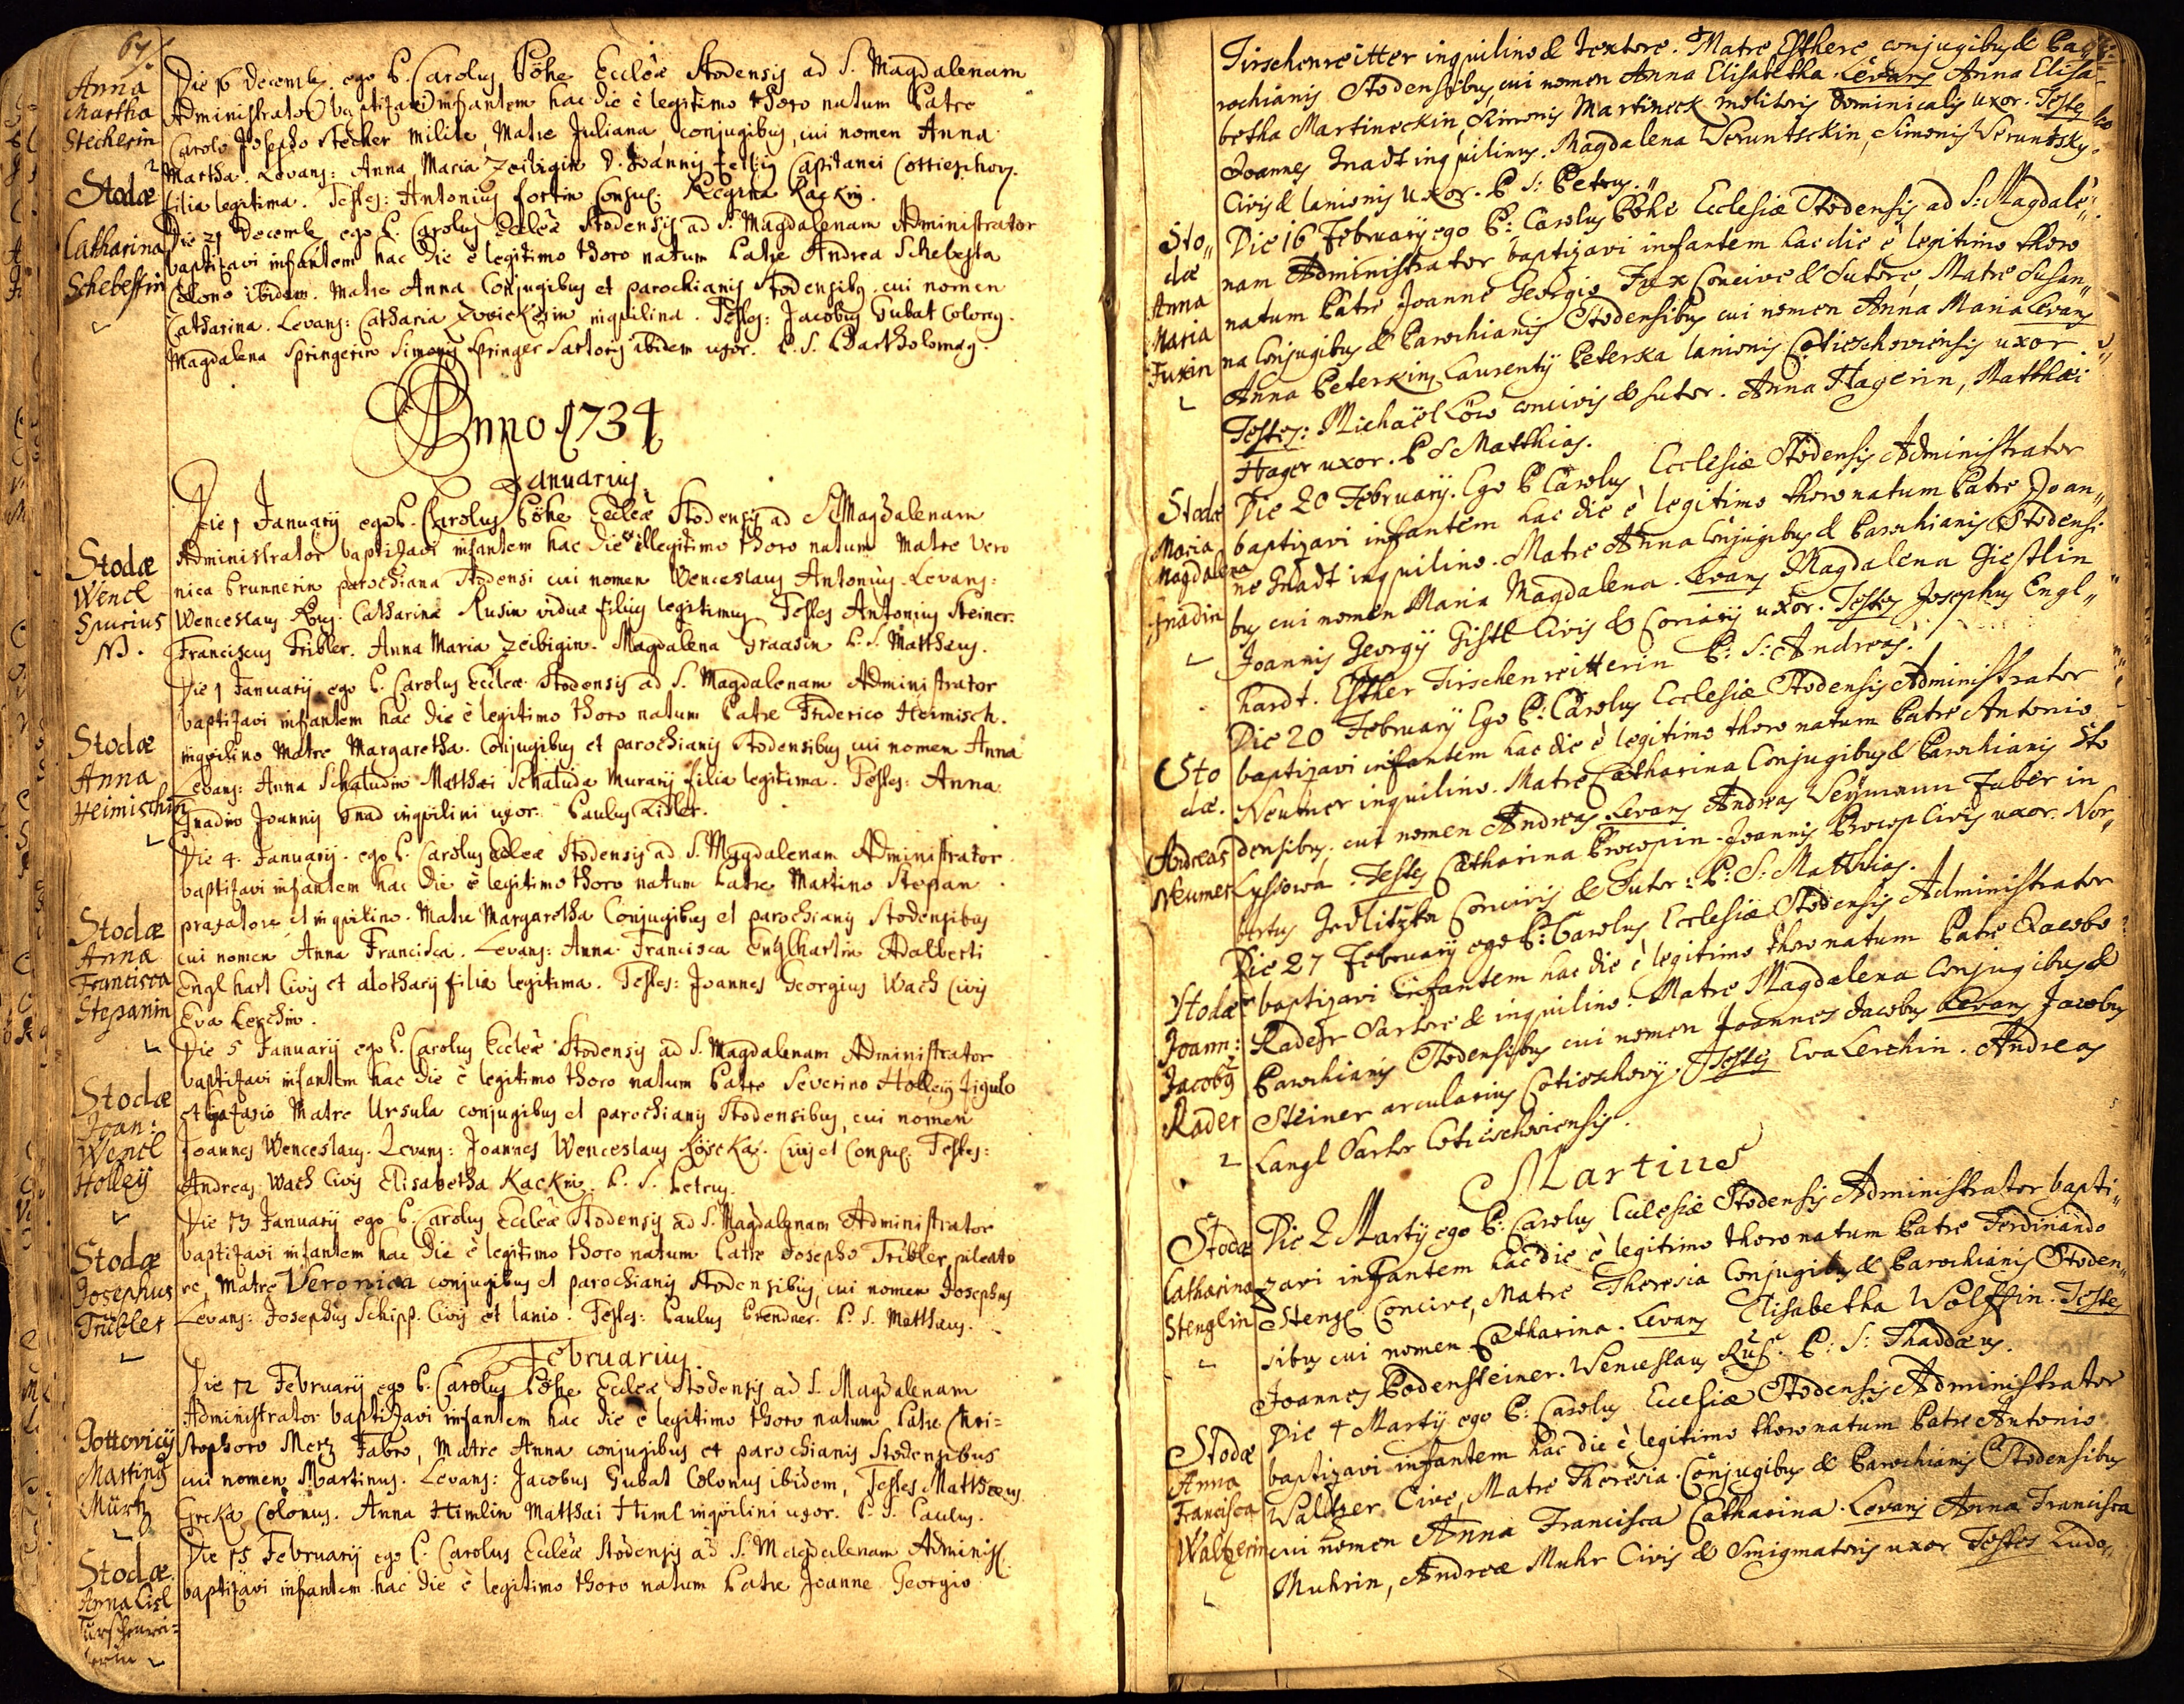 67
Anna
Martha
Stecherin
Die 16 Decemb. ego P. Carolus Böhe Eccleæ Stodensis ad S. Magdalenam
Administrator baptizavi infantem hac die è legitimo thoro natum Patre
Carolo Josepho Stecher milite, Matre Juliana conjugibus, cui nomen Anna
Martha. Levans: Anna Maria Zeibigin D. Joannis Capitanei
filia legitima. Testes: Antonius fortin Consul. Regina Kackin.
Stodæ
Catharina
Schebestin
Die 21 Decemb. ego P. Carolus Eccleæ Stodensis ad S. Magdalenam Administrator
baptizavi infantem hac die è legitimo thoro natum Patre Andrea Schebesta
Colono ibidem. Matre Anna Conjugibus et parochianis Stodensibus. cui nomen
Catharina. Levans: Catharia Zwickerin inquilina. Testes: Jacobus Gubat Colonus.
Magdalena Springerin Simonis Springer Sartoris ibidem uxor. P. S. Bartholomæus.
Anno 1734
Januarius.
Stodæ
Wencl
Spurius
N.
Die 1 January ego P. Carolus Böhe Eccleæ Stodensis ad S. Magdalenam
Administrator baptizavi infantem hac die illegitimo thoro natum Matre Vero
nica Brunnerin parochiana Stodensi cui nomen Wenceslaus Antonius. Levans:
Wenceslaus Rus. Catharinæ Rusin viduæ filius legitimus. Testes Antonius Steiner.
Franciscus Tribler. Anna Maria Zeibigin. Magdalena Graasin P. S. Matthæus.
Stodæ
Anna
Heimischin
Die 1 January ego P. Carolus Eccleæ Stodensis ad S. Magdalenam Administrator
baptizavi infantem hac die è legitimo thoro natum Patre Friderico Heimisch.
inquilino Matre Margaretha. Conjugibus et parochianis Stodensibus, cui nomen Anna
Levans: Anna Schaludin Matthæi Schaluda Murarij filia legitima. Testes: Anna
Gnadin Joannis Gnad inquilini uxor. Paulus
Stodæ
Anna
Francisca
Stepanin
Die 4 January. ego P. Carolus Eccleæ Stodensis ad S. Magdalenam Administrator.
baptizavi infantem hac die è legitimo thoro natum Patre Martino Stepan
et inquilino. Matre Margaretha Conjugibus et parochianis Stodensibus
cui nomen Anna Francisca. Levans: Anna Francisca Englhartin Adalberti
Englhart Civis et alotharij filia legitima. Testes: Joannes Georgius Wach Civis
Eva Lerchin.
Stodæ
Joan:
Wencl
Holleÿ
Die 5 January ego P. Carolus Eccleæ Stodensis ad S. Magdalenam Administrator
baptizavi infantem hac die è legitimo thoro natum Patre Severino Holleij figulo
et Matre Ursula conjugibus et parochianis Stodensibus, cui nomen
Joannes Wenceslaus. Levans: Joannes Wenceslaus Civis et Consul. Testes:
Andreas Wach Civis Elisabetha Kackin. P. S. Petrus.
Stodæ
Josephus
Tribler
Die 13 January ego P. Carolus Eccleæ Stodensis ad S. Magdalenam Administrator
baptizavi infantem hac die è legitimo thoro natum Patre Josepho Tribler pileato
re, Matre Veronica conjugibus et parochianis Stodensibus, cui nomen Josephus
Levans: Josephus Schipp. Civis et lanio. Testes: Paulus Brendner. P. S. Matthæus.
Februarius
Gottovicij
Martinus
Mürtz
Die 12 February ego P. Carolus Böhe Eccleæ Stodensis ad S. Magdalenam
Administrator baptizavi infantem hac die è legitimo thoro natum Patre Chri=
stophoro Merz Fabro, Matre Anna conjugibus et parochianis Stodensibus
cui nomen Martinus. Levans: Jacobus Gubat Colonus ibidem, Testes Matthæus
Colonus. Anna Himlin Matthæi Himl inquilini uxor. P. S. Paulus.
Stodæ
Anna Lisl
Türschenrei=
terin
Die 15 February ego P. Carolus Eccleæ Stodensis ad S. Magdalenam Administ.
baptizavi infantem hac die è legitimo thoro natum Patre Joanne Georgio
Tirschenreitter inquilino & Textore. Matre Esthere conjugibus & Pa
rochianis Stodensibus, cui nomen Anna Elisabetha. Levans Anna Elisa
betha Martineckin, Simonis Martineck molitoris dominicalis uxor. Testes
Joannes Gnadt inquilinus. Magdalena Weruntschkin, Simonis Weruntsky
Civis & lanionis uxor. P. S: Petrus.
Sto„
dæ
Anna
Maria
Fuxin
Die 16 February ego P: Carolus Böhe Ecclesiæ Stodensis ad S: Magdale„
nam Administrator baptizavi infantem hac die è legitimo thoro
natum Patre Joanne Georgio Fux Concive & Sutore, Matre Susan„
na Conjugibus & Parochianis Stodensibus cui nomen Anna Maria Levans
Anna Peterkin, Laurentij Peterka lanionis Cotieschoviensis uxor
Testes: Michaël Löw concivis & sutor. Anna Hagerin, Matthæi
Hager uxor. P S Matthias.
Stodæ
Maria
Magdalena
Gnadin
Die 20 February. Ego P Carolus Ecclesiæ Stodensis Administrator
baptizavi infantem hac die è legitimo thoro natum Patre Joan„
ne Gnadt inquilino. Matre Anna Conjugibus & Parochianis Stodensi
bus cui nomen Maria Magdalena. Levans Magdalena Giestlin
Joannis Georgij Gistl Civis & Coriarij uxor. Testes Josephus Engl„
hardt. Esther Tirschenreitterin P: S: Andreas.
Sto
dæ.
Andreas
Neumer
Die 20 February Ego P: Carolus Ecclesiæ Stodensis Administrator
baptizavi infantem hac die è legitimo thoro natum Patre Antonio
Neumer inquilino. Matre Catharina Conjugibus & Parochianis Sto
densibus. cui nomen Andreas Levans Andreas Weÿmann Faber in
Lyssowa. Testes Catharina Procopin. Joannis Procop Civis uxor. Nor„
bertus Jedlitzka Concivis & Sutor: P: S: Matthias.
Stodæ
Joann:
Jacobus
Rader
Die 27 February ego P: Carolus Ecclesiæ Stodensis Administrator
baptizavi infantem hac die è legitimo thoro natum Patre Jacobo
Rader Sartore & inquilino. Matre Magdalena Conjugibus &
Parochianis Stodensibus cui nomen Joannes Jacobus Levans Jacobus
Steiner arcularius Cotieschovij. Testes Eva Lerchin. Andreas
Langl Sartor Cotieschoviensis.
Martius
Stodæ
Catharina
Stenglin
Die 2 Martij ego P: Carolus Ecclesiæ Stodensis Administrator bapti„
zavi infantem hac die è legitimo thoro natum Patre Ferdinando
Stengl Concive, Matre Theresia Conjugibus & Parochianis Stoden„
sibus cui nomen Catharina. Levans Elisabetha Wolffin. Testes
Joannes Bodensteiner. Wenceslaus Rus. P: S: Thaddæus.
Stodæ
Anna
Francisca
Waltzerin
Die 4 Martij ego P: Carolus Ecclesiæ Stodensis Administrator
baptizavi infantem hac die è legitimo thoro natum Patre Antonio
Waltzer Cive, Matre Theresia. Conjugibus & Parochianis Stodensibus
cui nomen Anna Francisca Catharina. Levans Anna Francisca
Muhrin, Andreæ Muhr Civis & Smigmatoris uxor Testes Ludo„